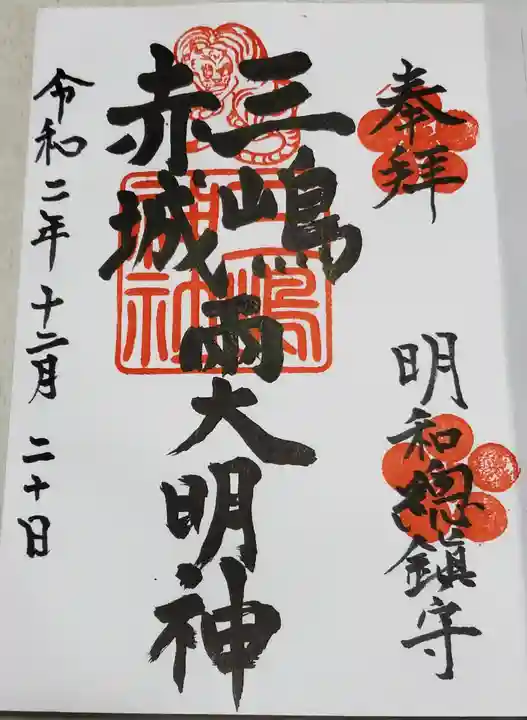 奉拝
明和總鎮守
三嶋
赤城
両大明神
三嶋神社
令和二年十二月二十日